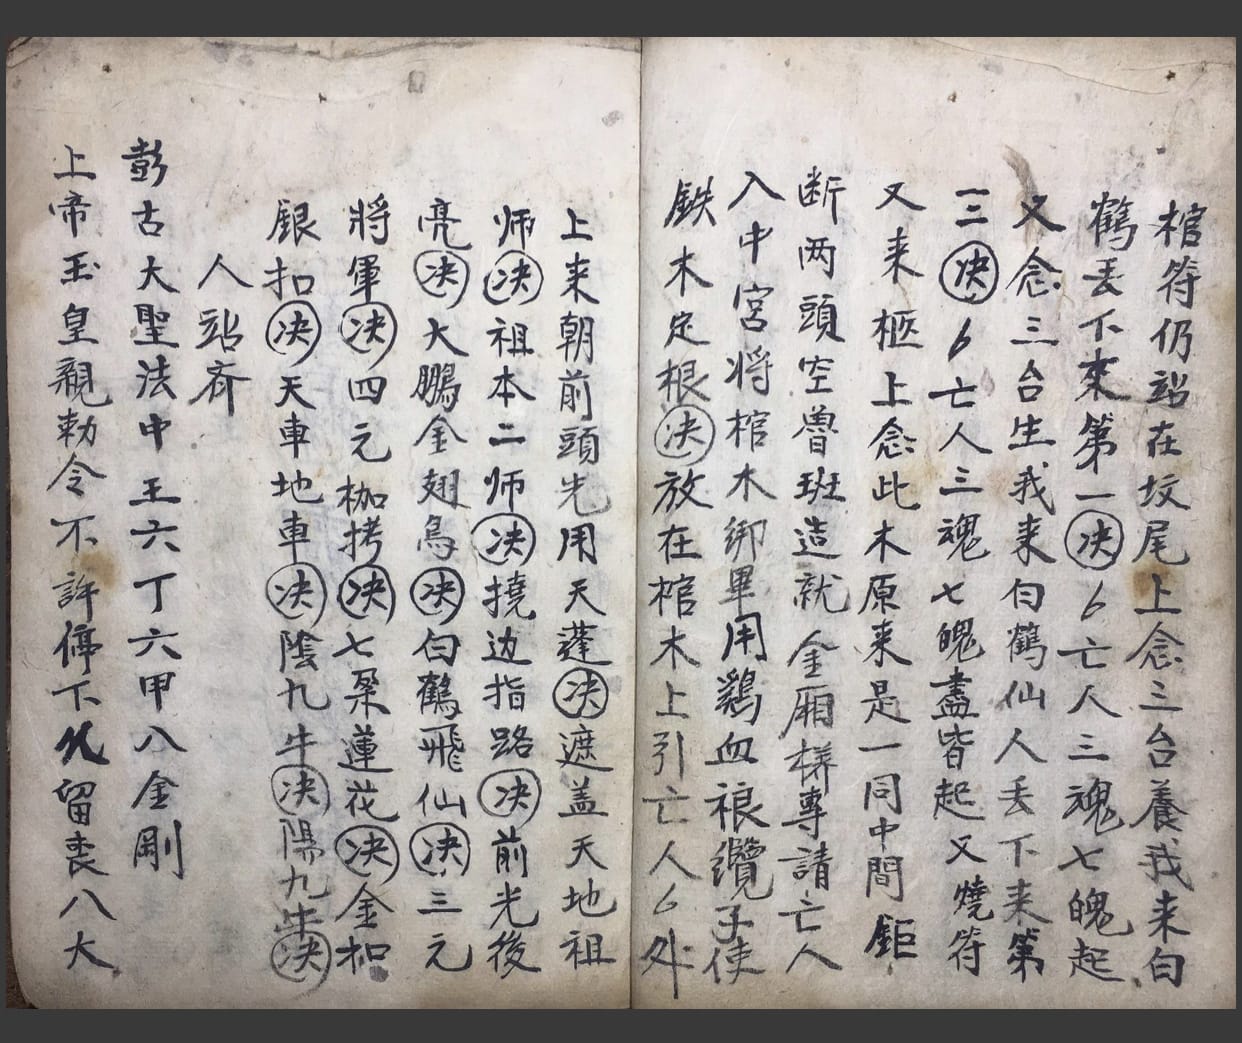 棺符仍站在坟尾上念三台養我来白
鶴丢下來第一决6亡人三魂七魄起
又念三台生我来白鶴仙人丢下来第
二三决6亡人三魂七魄盡皆起又燒符
又来柩上念此木原来是一同中間鉅
断两頭空魯班造就金厢樣專請亡人
入中宮将棺木绑畢用鷄血裉纜子使
鉄木定根决放在棺木上引亡人6外
上来朝前頭先用天蓬决遮盖天地祖
师决祖本二师决撓边指路决前光後
亮决大鵬金翅鳥决白鶴飛仙决三元
將軍决四元枷拷决七朶蓮花决金扣
銀扣决天車地車决陰九牛决陽九牛决
人站齐
彭古大聖法中王六丁六甲八金剛
上帝玉皇親勅令不許停下久留丧八大